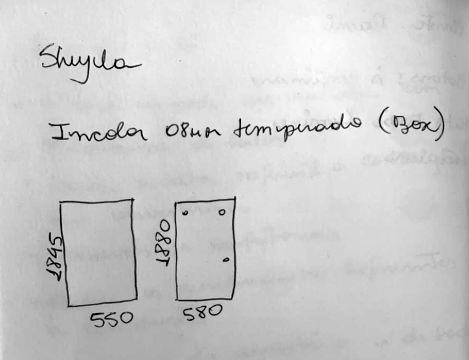 Sheyla
Incolor 08mm temperado (Box)
1845
550
1880
580